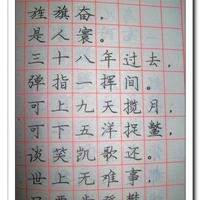 旌旗奋，
是人寰。
三十八年过去，
弹指一挥间。
可上九天揽月，
可下五洋捉鳖，
谈笑凯歌还。
世上无难事，